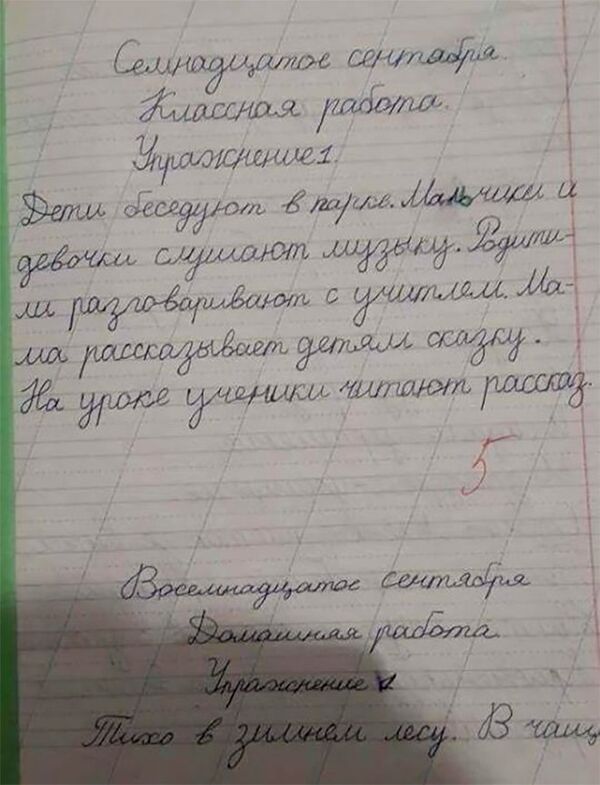 Семнадцатое сентабря.
Классная работа.
Упражнение 1.
Дети беседуют в парке. Мальчики и
девочки слушают музыку. Родити-
ли разговаривают с учитлем. Ма-
ма рассказывает детям сказку.
На уроке ученики читают рассказ.
5
Восемнадцатое сентября
Домашняя работа.
Упражнение 1
Тихо в зимнем лесу. В чащ